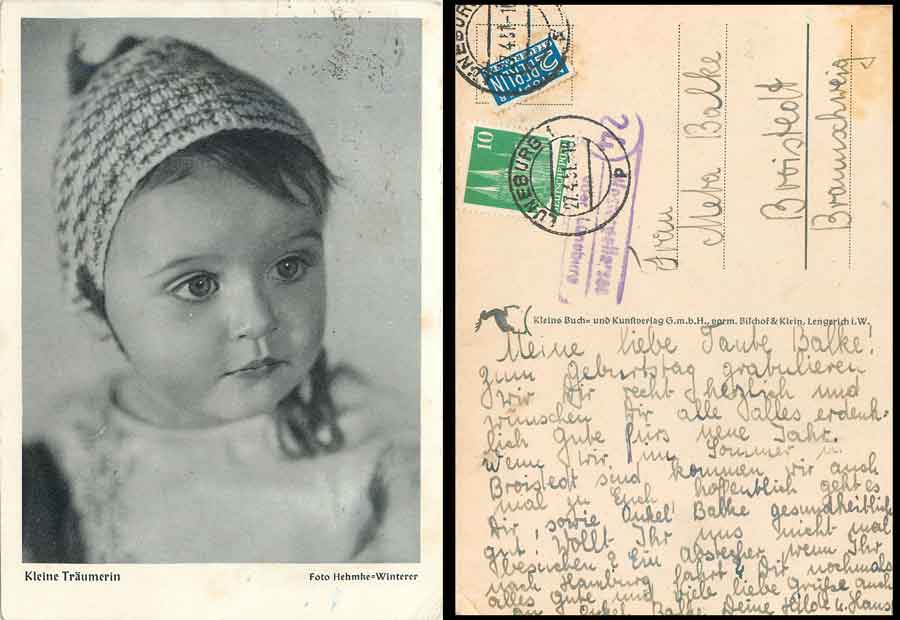 Kleine Träumerin
Foto Hehmke=Winterer
LÜNEBURG
2 NOTOPFER
BERLIN
STEUERMARKE
10
LÜNEBURG 1
27.4.51
p
über Lüneburg
Frau
Meta Balke
Broistedt
Braunschweig
Kleins Buch= und Kunstverlag G.m.b.H., vorm. Bischof & Klein, Lengerich i.W.
Meine liebe Tante Balke!
Zum Geburtstag gratulieren
wir Dir recht herzlich und
wünschen Dir alle alles erdenk-
lich Gute fürs neue Jahr.
Wenn wir im Sommer in
Broistedt sind kommen wir auch
mal zu Euch, hoffentlich geht es
Dir, sowie Onkel Balke gesundheitlich
gut! Wollt Ihr uns nicht mal
besuchen? Ein abstecher, wenn Ihr
nach Hamburg fahrt? Dir nochmals
alles gute und viele liebe Grüße auch
Onkel Balke Deine Hilde u. Hans